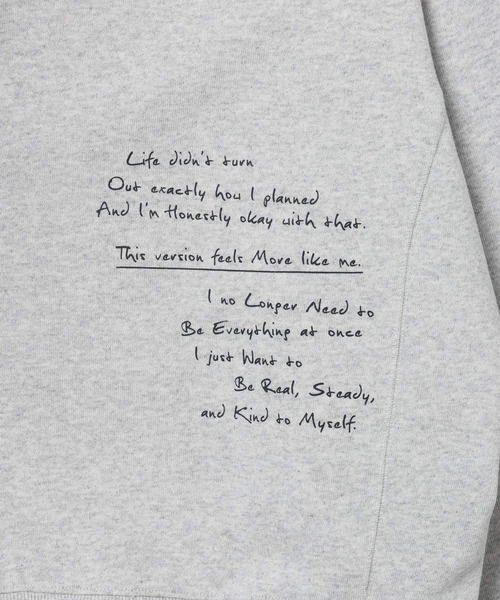 Life didn't turn
Out exactly how I planned
And I'm Honestly okay with that.
This version feels More like me.
I no Longer Need to
Be Everything at once
I just Want to
Be Real, Steady,
and Kind to Myself.